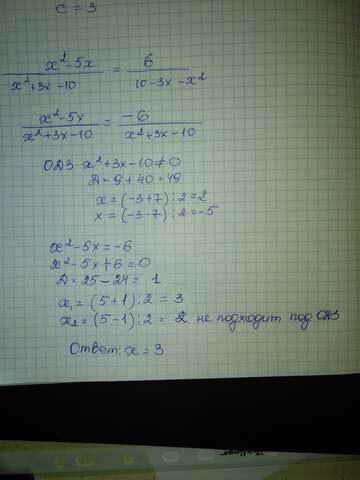 c = 3
x²-5x / x²+3x-10 = 6 / 10-3x-x²
x²-5x / x²+3x-10 = -6 / x²+3x-10
ОДЗ x²+3x-10≠0
D=9+40=49
x=(-3+7):2=2
x=(-3-7):2=-5
x²-5x=-6
x²-5x+6=0
D=25-24=1
x₁=(5+1):2=3
x₂=(5-1):2=2 не подходит под ОДЗ
Ответ: x=3